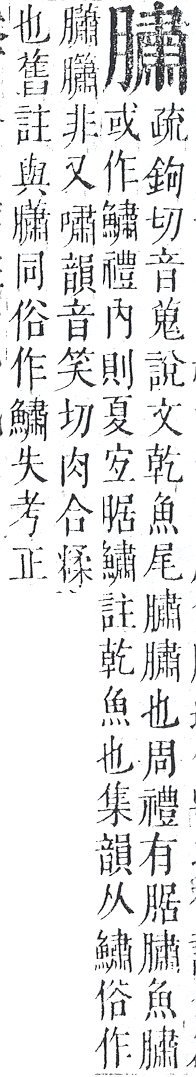 䐹
疏鉤切音蒐說文乾魚尾䐹䐹也周禮有腒䐹魚䐹
或作鱐禮內則夏宐腒鱐註乾魚也集韻从鱐俗作
非又嘯韻音笑切肉合糅
也舊註與䐹同俗作鱐失考正